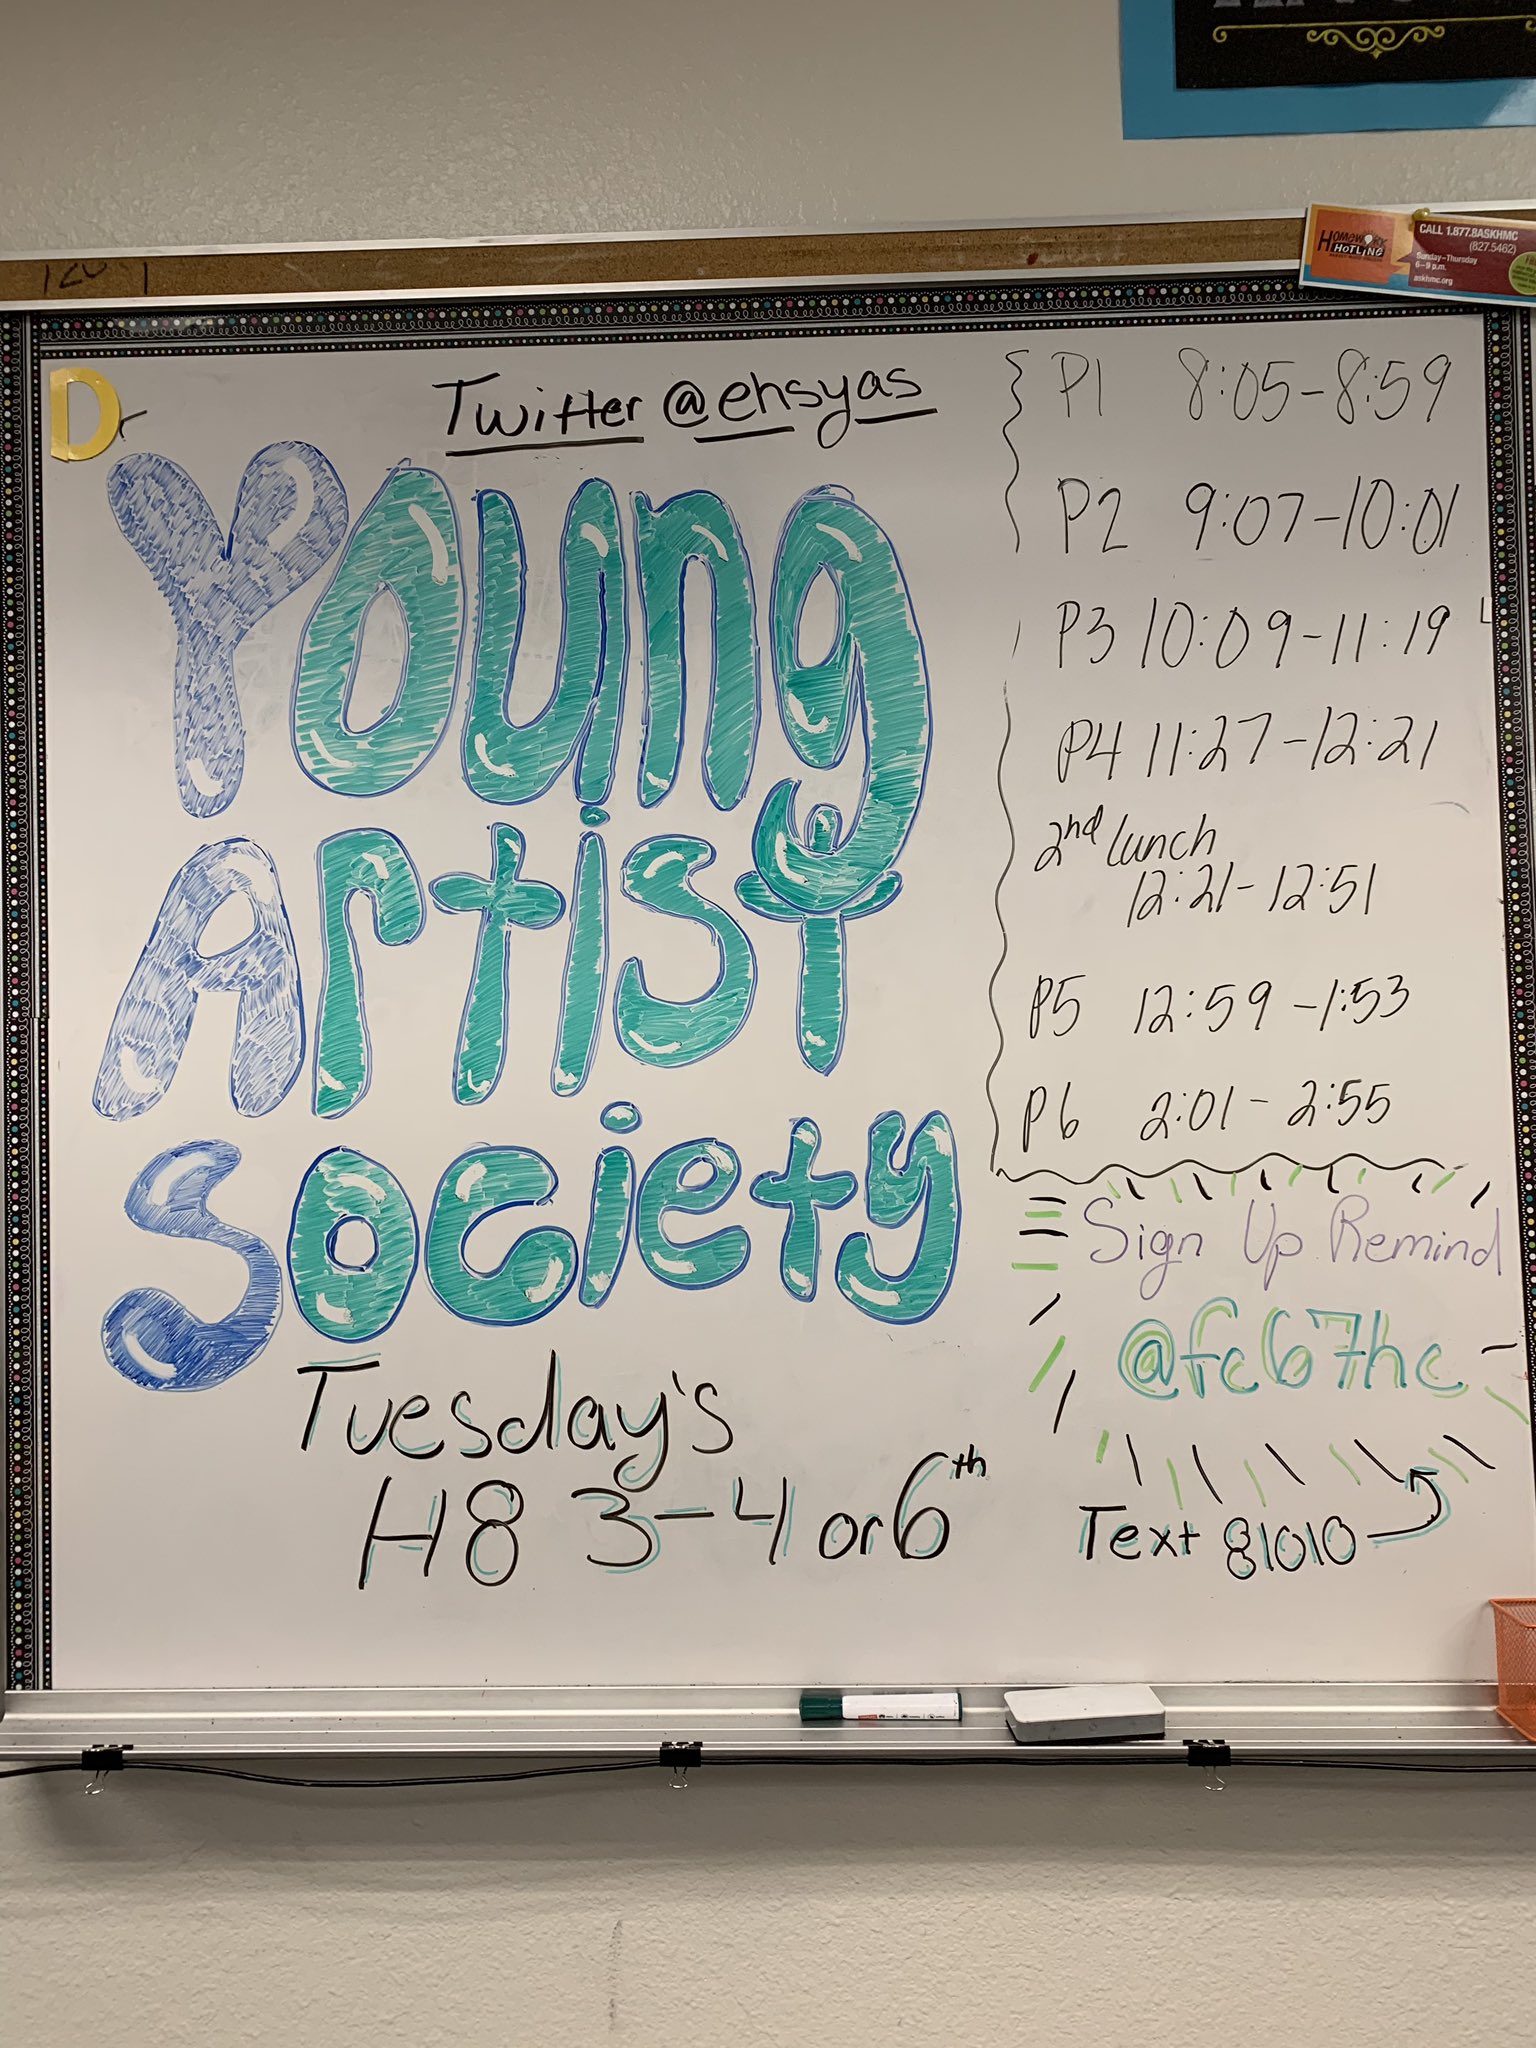 HOMEWORK
HOTLINE
CALL 1.877.8ASKHMC
(827.5462)
Sunday–Thursday
6–9 p.m.
askhmc.org
D
Twitter @ehsyas
Young
Artist
Society
Tuesday's
H8 3-4 or 6th
P1 8:05-8:59
P2 9:07-10:01
P3 10:09-11:19
P4 11:27-12:21
2nd lunch
12:21-12:51
P5 12:59-1:53
P6 2:01-2:55
Sign Up Remind
@fc67hc
Text 81010